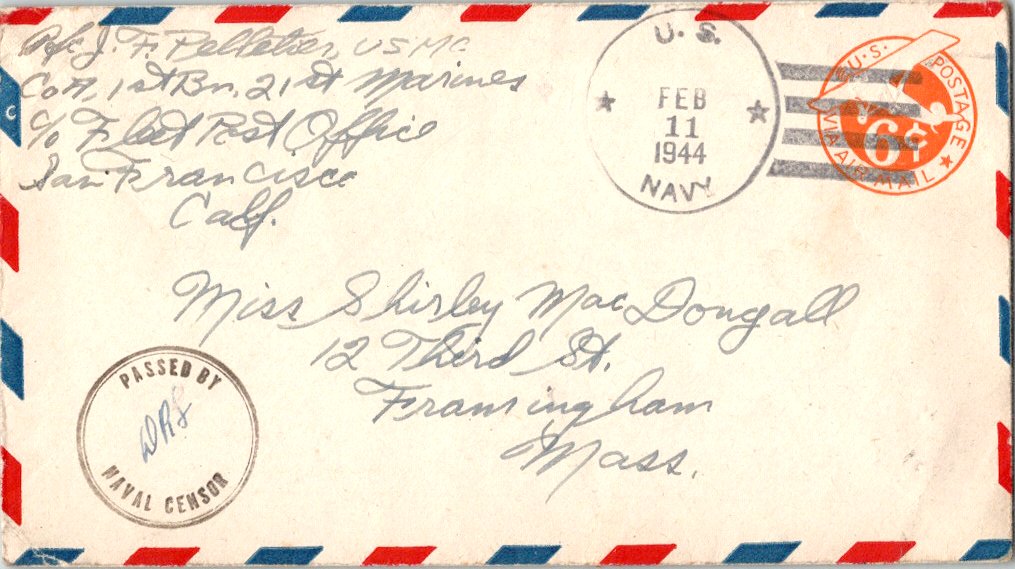 Pfc J. F. Pelletier, USMC
Co A, 1st Bn. 21st Marines
c/o Fleet Post Office
San Francisco
Calf.
U. S.
FEB
11
1944
NAVY
U.S. POSTAGE
6¢
VIA AIR MAIL
Miss Shirley MacDongall
12 Third St.
Framingham
Mass.
PASSED BY
NAVAL CENSOR